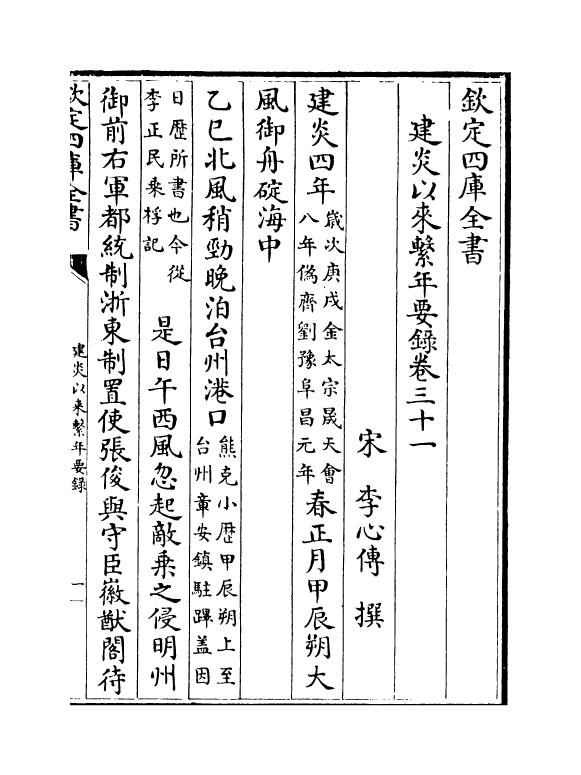 欽定四庫全書
建炎以來繫年要錄卷三十一
宋　李心傳　撰
建炎四年歲次庚戌金太宗晟天會八年偽齊劉豫阜昌元年春正月甲辰朔大
風御舟碇海中
乙巳北風稍勁晚泊台州港口熊克小歴甲辰朔上至台州章安鎮駐蹕盖因
日歴所書也今從李正民乗桴記是日午西風忽起敵乗之侵明州
御前右軍都統制浙東制置使張俊與守臣徽猷閣待
欽定四庫全書
建炎以來繫年要錄
一